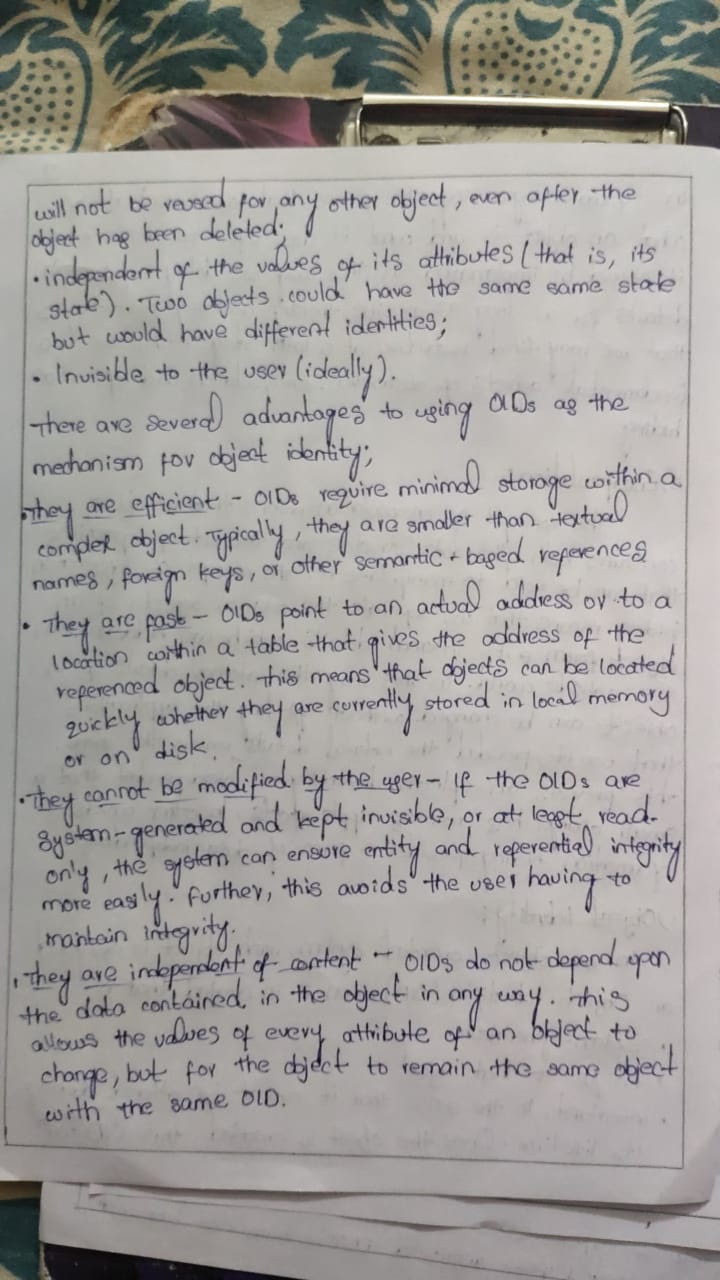 will not be reused for any other object, even after the
object has been deleted;
• independent of the values of its attributes (that is, its
state). Two objects could have the same same state
but would have different identities;
• Invisible to the user (ideally).
There are several advantages to using OIDs as the
mechanism for object identity;
• They are efficient - OIDs require minimal storage within a
complex object. Typically, they are smaller than textual
names, foreign keys, or other semantic-based references
• They are fast - OIDs point to an actual address or to a
location within a table that gives the address of the
referenced object. This means that objects can be located
quickly whether they are currently stored in local memory
or on disk.
• They cannot be modified by the user - If the OIDs are
System-generated and kept invisible, or at least read-
only, the system can ensure entity and referential integrity
more easily. Further, this avoids the user having to
maintain integrity.
• They are independent of content - OIDs do not depend upon
the data contained in the object in any way. This
allows the values of every attribute of an object to
change, but for the object to remain the same object
with the same OID.